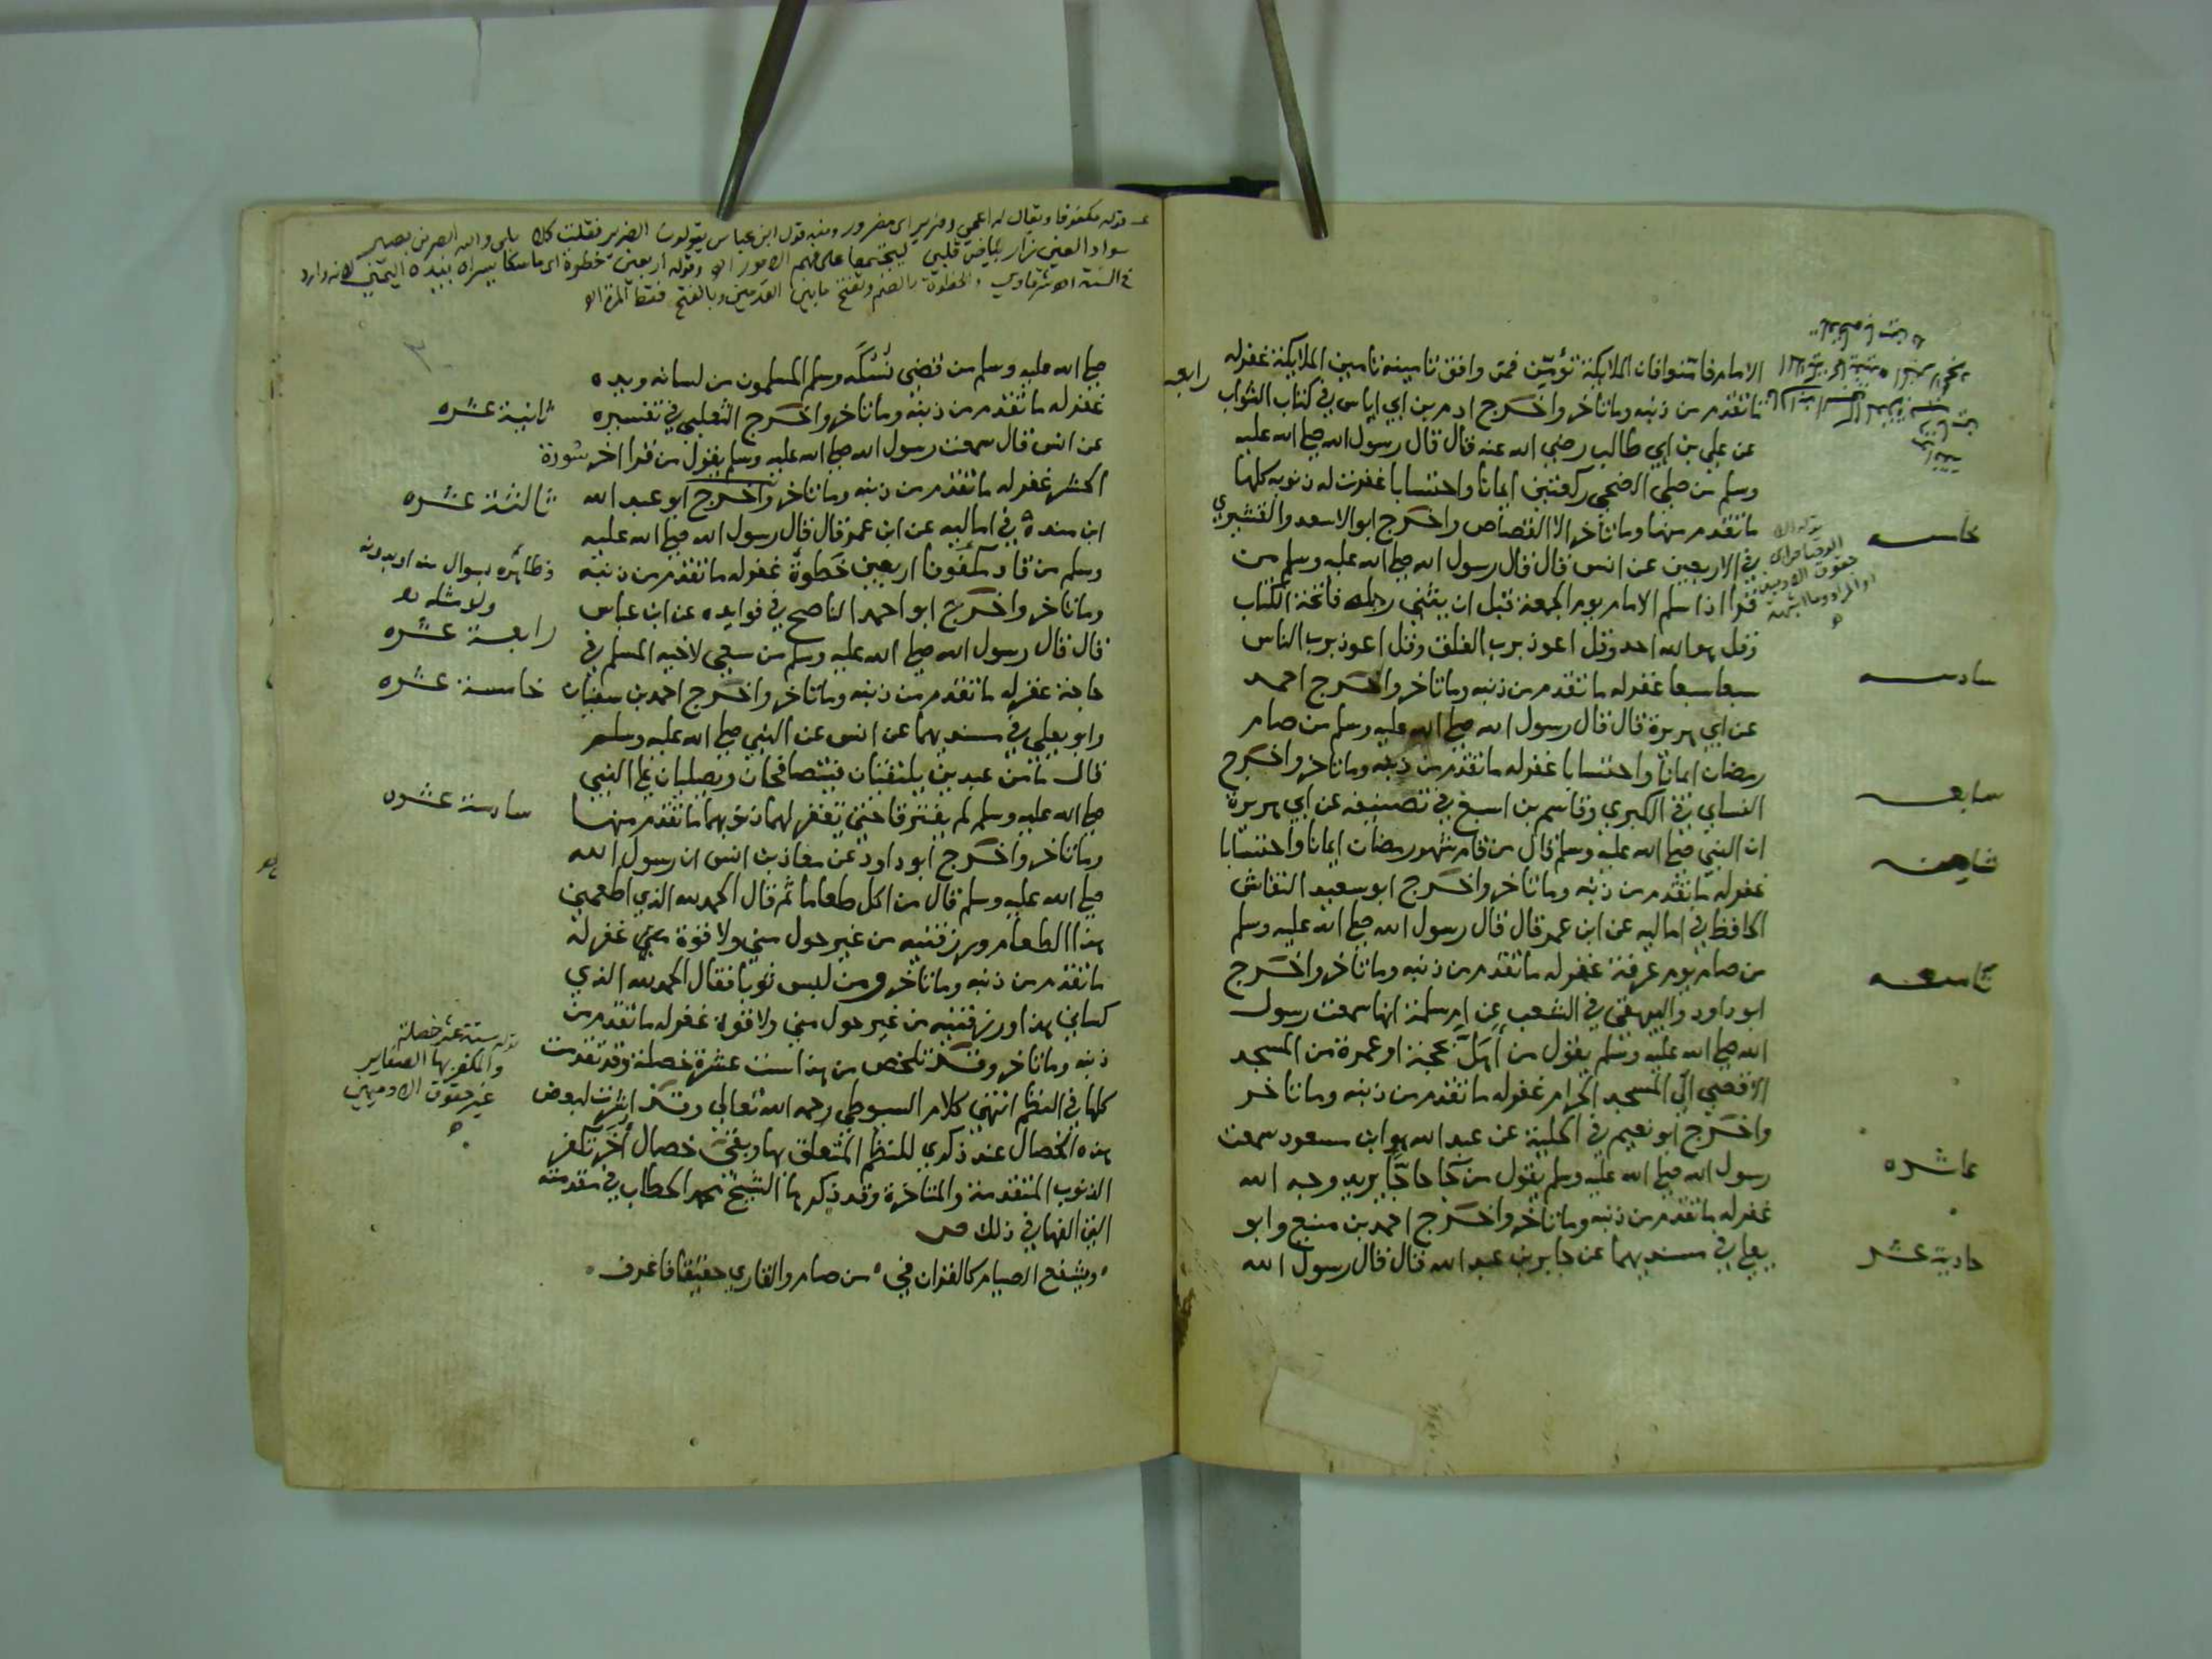 الامام فامنوا فان الملايكة تؤمن فمن وافق تامينه تامين الملايكة غفر له
رابعه
ما تقدم من ذنبه وما تاخر واخرج ادم بن ابي اياس في كتاب الثواب
عن علي بن ابي طالب رضي الله عنه قال قال رسول الله صلى الله عليه
وسلم من صلى الضحى ركعتين ايمانا واحتسابا غفرت له ذنوبه كلها
خامسه
ما تقدم منها وما تاخر الا القصاص واخرج ابو الاسعد والقشيري
في الاربعين عن انس قال قال رسول الله صلى الله عليه وسلم من
قرا اذا سلم الامام يوم الجمعة قبل ان يثني رجله فاتحة الكتاب
وقل هو الله احد وقل اعوذ برب الفلق وقل اعوذ برب الناس
سادسه
سبعا سبعا غفر له ما تقدم من ذنبه وما تاخر واخرج احمد
عن ابي هريرة قال قال رسول الله صلى الله عليه وسلم من صام
رمضان ايمانا واحتسابا غفر له ما تقدم من ذنبه وما تاخر واخرج
سابعه
النساي في الكبري وقاسم بن اصبغ في تصنيفه عن ابي هريرة
ان النبي صلى الله عليه وسلم قال من قام شهر رمضان ايمانا واحتسابا
ثامنه
غفر له ما تقدم من ذنبه وما تاخر واخرج ابو سعيد النقاش
الحافظ في اماليه عن ابن عمر قال قال رسول الله صلى الله عليه وسلم
من صام يوم عرفة غفر له ما تقدم من ذنبه وما تاخر واخرج
تاسعه
ابو داود والبيهقي في الشعب عن ام سلمة انها سمعت رسول
الله صلى الله عليه وسلم يقول من اهل بحجة او عمرة من المسجد
الاقصى الى المسجد الحرام غفر له ما تقدم من ذنبه وما تاخر
واخرج ابو نعيم في الحلية عن عبد الله هو ابن مسعود سمعت
عاشره
رسول الله صلى الله عليه وسلم يقول من جا حاجا يريد وجه الله
غفر له ما تقدم من ذنبه وما تاخر واخرج احمد بن منيع وابو
حادية عشر
يعلى في مسنديهما عن جابر بن عبد الله قال قال رسول الله
قوله مكفوفا ويقال له اعمى وضرير اى مضرور ومنه قول ابن عباس يقولون الضرير فقلت كلا بلى والله ابصر من بصير
سواد العين زار بياض قلبي ليجتمعا على فهم الامور اه وقوله اربعين خطوة اى ماسكا يسراه بيده اليمنى لانه وارد
في السنة اه شرقاوي والخطوة بالضم وتفتح ما بين القدمين وبالفتح فقط المرة اه
صلى الله عليه وسلم من قضى نسكه وسلم المسلمون من لسانه ويده
ثانية عشره
غفر له ما تقدم من ذنبه وما تاخر واخرج الثعلبي في تفسيره
عن انس قال سمعت رسول الله صلى الله عليه وسلم يقول من قرا اخر سورة
ثالثة عشره
الحشر غفر له ما تقدم من ذنبه وما تاخر واخرج ابو عبد الله
ابن مندة في اماليه عن ابن عمر قال قال رسول الله صلى الله عليه
وظائره بسوال منه او بدونه
ولا مثله
وسلم من قاد مكفوفا اربعين خطوة غفر له ما تقدم من ذنبه
وما تاخر واخرج ابو احمد الناصح في فوايده عن ابن عباس
رابعة عشره
قال قال رسول الله صلى الله عليه وسلم من سعى لاخيه المسلم في
خامسة عشره
حاجة غفر له ما تقدم من ذنبه وما تاخر واخرج احمد بن سفيان
وابو يعلى في مسنديهما عن انس عن النبي صلى الله عليه وسلم
قال ما من عبدين يلتقيان فيتصافحان ويصليان على النبي
سادسة عشره
صلى الله عليه وسلم لم يفترقا حتى تغفر لهما ذنوبهما ما تقدم منها
وما تاخر واخرج ابو داود عن معاذ بن انس ان رسول الله
صلى الله عليه وسلم قال من اكل طعاما ثم قال الحمد لله الذي اطعمني
هذا الطعام ورزقنيه من غير حول مني ولا قوة مني غفر له
ما تقدم من ذنبه وما تاخر ومن لبس ثوبا فقال الحمد لله الذي
كساني هذا ورزقنيه من غير حول مني ولا قوة غفر له ما تقدم من
قوله ستة عشر خصلة
والمكفر بها الصغاير
غير حقوق الادميين
ذنبه وما تاخر وقد تلخص من هذا ست عشرة خصلة وقد تقدمت
كلها في النظم انتهى كلام السيوطي رحمه الله تعالى وقد اشرت لبعض
هذه الخصال عند ذكري للنظم المتعلق بها وبقي خصال اخر تكفر
الذنوب المتقدمة والمتاخرة وقد ذكرها الشيخ محمد الحطاب في مقدمته
التي الفها في ذلك ص
ويشفع الصيام كالقران في من صام والقاري حقيقا فاعرف